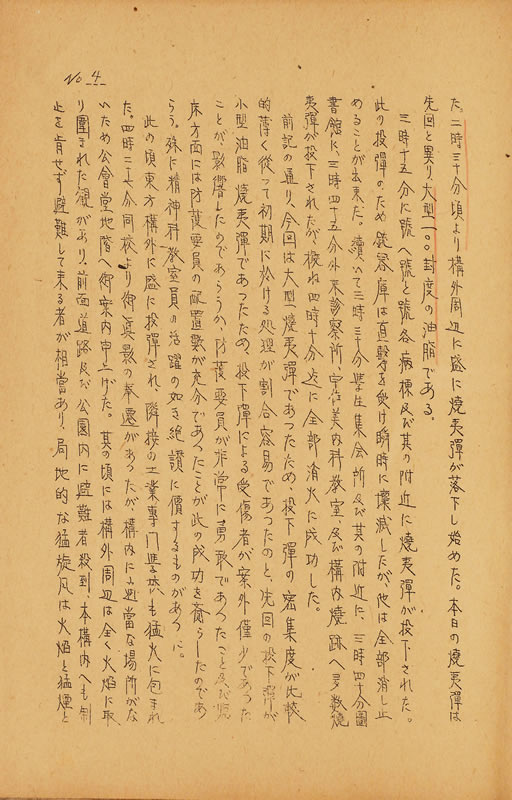 No. 4
た。二時三十分頃より構外周辺に盛に焼夷彈が落下し始めた。本日の焼夷彈は
先回と異り大型一〇〇封度の油脂である。
三時十五分に號へ號と號各病棟及び其の附近に焼夷彈が投下された。
此の投彈のため 庫は直撃を受け瞬時に壊滅したが、他は全部消し止
めることが出来た。續いて三時三十分學生集会所及び其の附近に、三時四十分圖
書館に、三時四十五分外来診察所、宇佐美内科教室、及び構内焼跡へ多数焼
夷彈が投下されたが、概ね四時十分迄に全部消火に成功した。
前記の通り、今回は大型焼夷彈であつたため、投下彈の密集度が比較
的薄く従って初期に於ける処理が割合容易であつたのと、先回の投下彈が
小型油脂焼夷彈であつたため、投下彈による受傷者が案外僅少であつた
ことが、影響したのであらうか、防護要員が非常に勇敢であつたこと及び臨
床方面には防護要員の配置数が充分であつたことが此の成功を齎らしたのであ
らう。殊に精神科教室員の活躍の如き絶讃に價するものがあつた。
此の頃東方構外に盛に投彈され、隣接の工業専門學校も猛火に包まれ
た。四時二十分同校より御眞影の奉遷があつたが、構内に適當な場所がな
いため公會堂地階へ御案内申上げた。其の頃には構外周辺は全く火焔に取
り圍まれた観があり、前面道路及び公園内に避難者殺到、本構内へも制
止を肯せず避難して来る者が相當あり、局地的な猛旋風は火焔と猛煙と